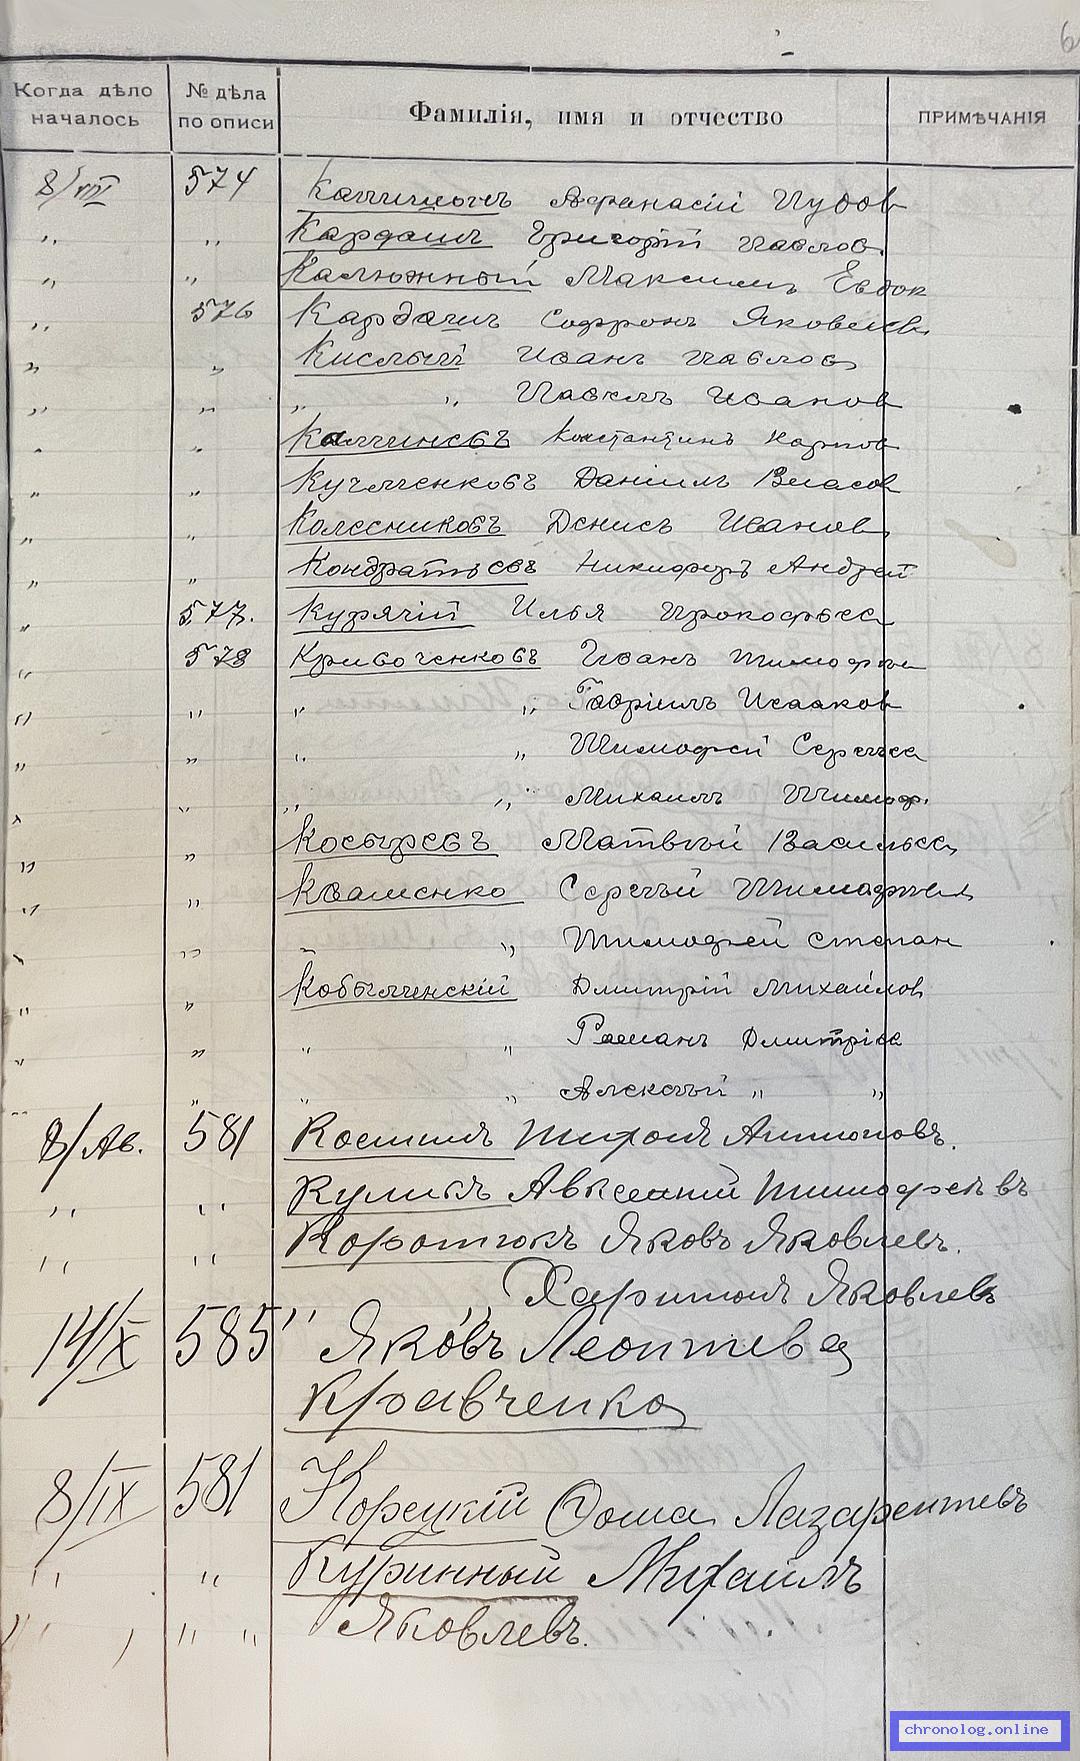 6
Когда дѣло началось № дѣла по описи Фамилія, имя и отчество ПРИМѢЧАНІЯ
8/VIII 574 Афанасій Іудов
" " Кардашъ Григорій Павлов.
" " Калюжный Максимъ Евдок
" 576 Кардашъ Софронъ Яковлев
" " Кислый Иванъ Павлов
" " " " Павелъ Иванов
" " Константинъ Карпов
" " Данiилъ Власов
" " Колесниковъ Денисъ Иванов
" " Кондратьевъ Никифоръ Андрей
" 577. Курячій Илья Прокофьев
" 578 Кривоченковъ Иванъ Тимофѣи
" " " " Гавріилъ Исааков
" " " " Тимофей Сергѣев
" " " " Михаилъ Тимоф.
" " Косыревъ Матвѣй Васильев
" " Кваленко Сергѣй Тимофѣев
" " " " Тимофей Степан
" " Кобылченскій Дмитрій Михайлов
" " " " Романъ Дмитріев
" " " " Алексѣй " "
8/Ав. 581 Костинъ Антоновъ.
" " Куликъ Тимофѣевъ
" " Коротюкъ Яковъ Яковлевъ.
Харитонъ Яковлевъ
14/X 585 " Яковъ Леонтьев
Кравченко
8/IX 581 Корецкій Фома Лазарентьевъ
" " Куринный Михаилъ
" " " Яковлевъ.
chronolog.online